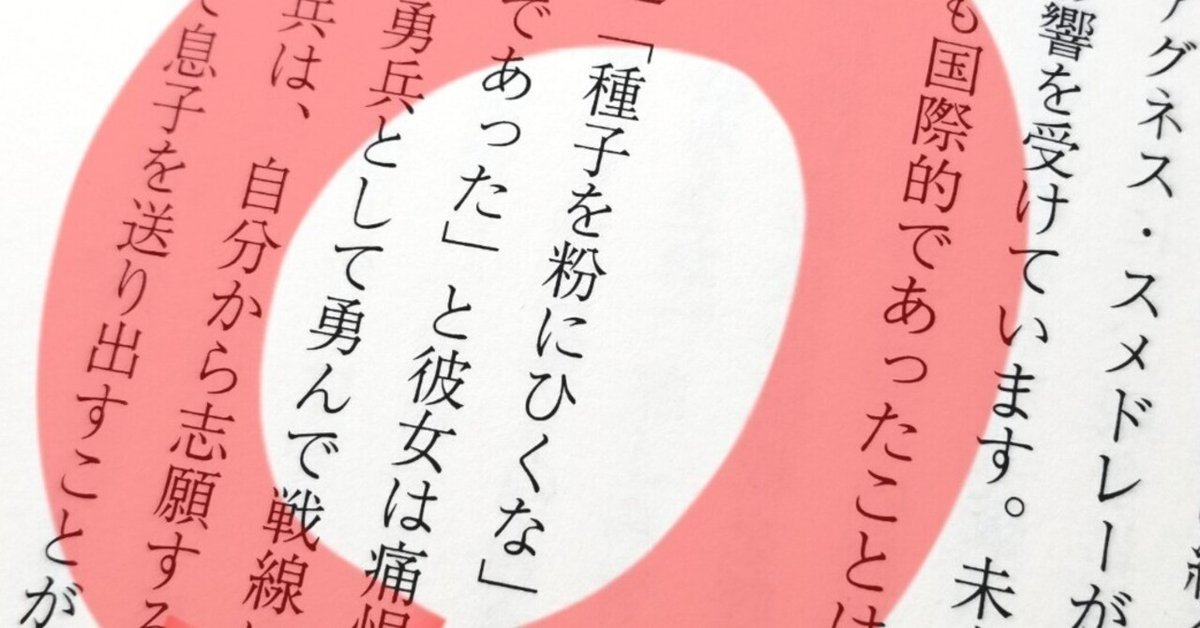 アグネス・スメドレーが
響を受けています。未
も国際的であったことは
「種子を粉にひくな」
であった」と彼女は痛恨
勇兵として勇んで戦線
兵は、自分から志願する
て息子を送り出すことが